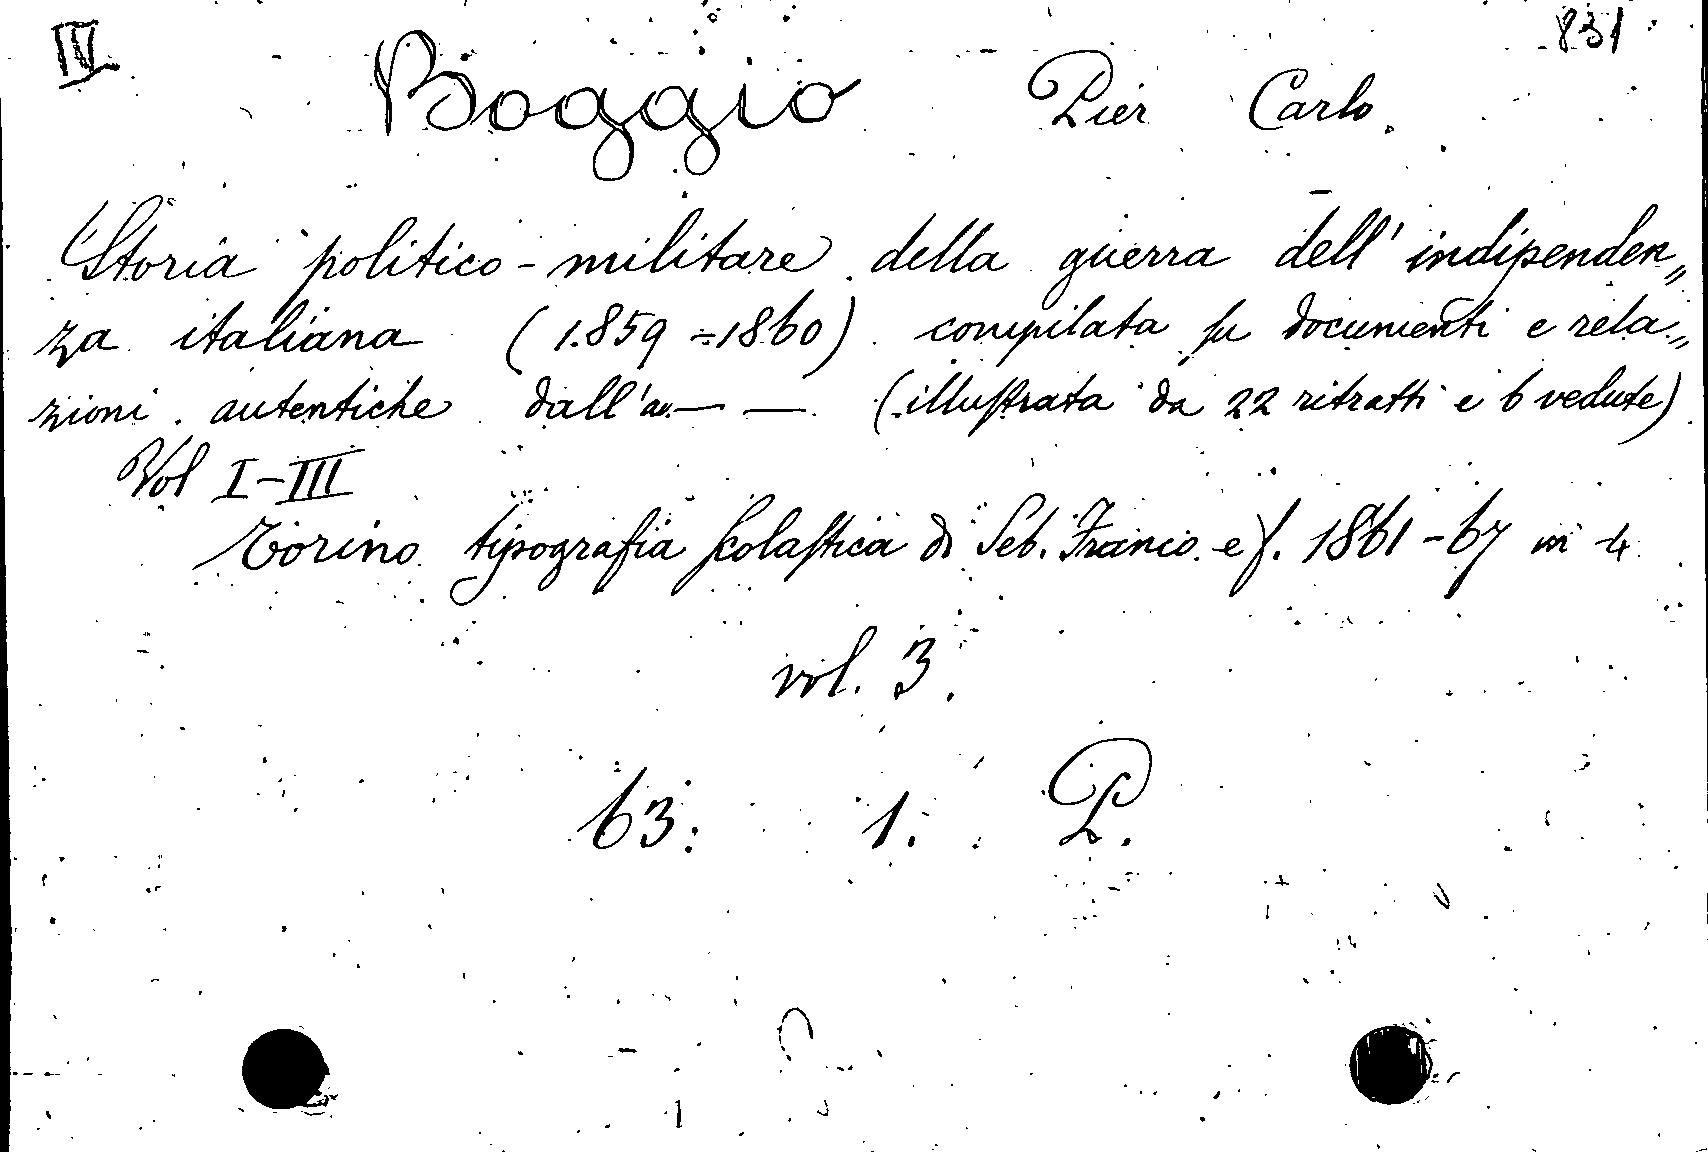 IV 831
Boggio Pier Carlo.
Storia politico-militare della guerra dell'indipenden„
za italiana (1859÷1860) compilata su documenti e rela„
zioni autentiche dall'a.— — (illustrata da 22 ritratti e 6 vedute)
Vol I-III
Torino tipografia scolastica di Seb. Franco e f. 1861-67 in 4
vol. 3.
63. 1. P.